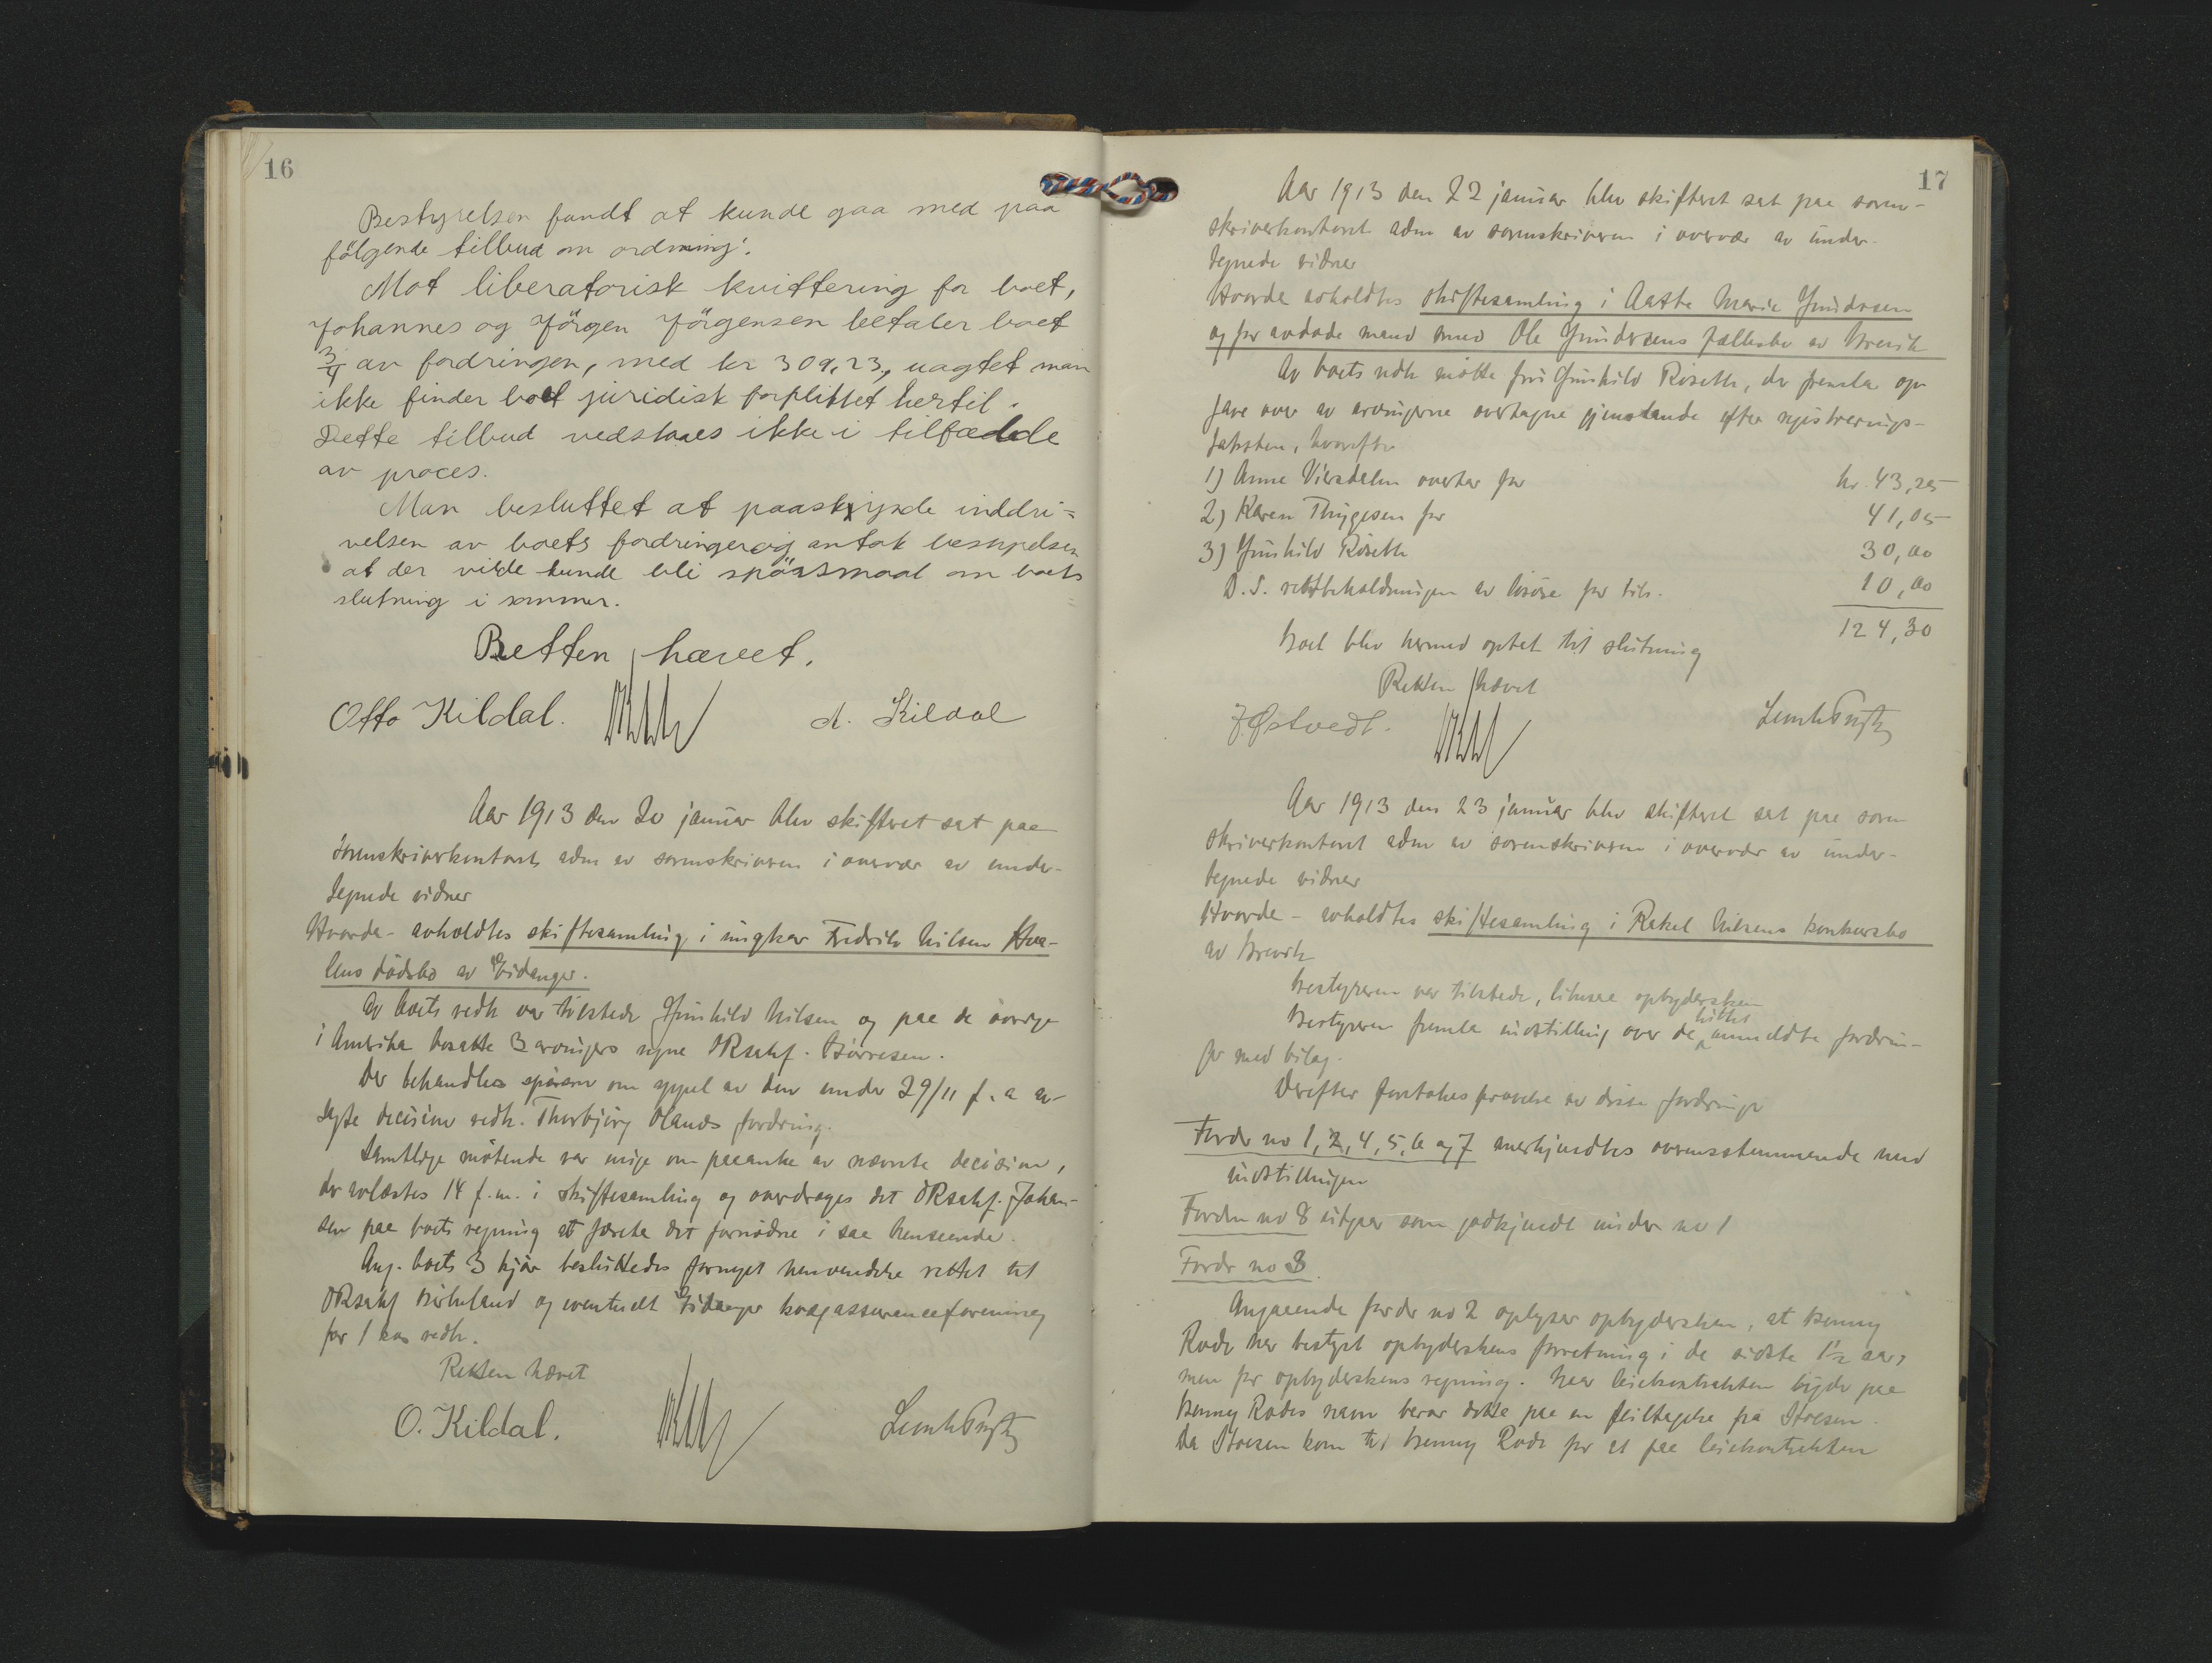 16
Bestyrelsen fandt at kunde gaa med paa
følgende tilbud om ordning:
Mot liberatorisk kvittering for boet,
Johannes og Jørgen Jørgensen betaler boet
3/4 av fordringen, med kr 309,23, uagtet man
ikke finder boet juridisk forpliktet hertil.
Dette tilbud vedstaaes ikke i tilfælde
av proces.
Man besluttet at paaskynde inddri=
velsen av boets fordringer og antok bestyrelsen
at der vilde kunde bli spörsmaal om boets
slutning i sommer.
Retten hævet.
Otto Kildal. A. Kildal
Aar 1913 den 20 januar blev skifteret sat paa
sorenskriverkontoret adm av sorenskriveren i overvær av under-
tegnede vidner
Hvorda avholdtes skiftesamling i ungkar Fredrik Nilsen
dødsbo av Eidanger.
Av boets vedk var tilstede Gunhild Nilsen og paa de øvrige
i Amerika bosatte 3 arvingers vegne ORsakf. Børresen.
Der behandledes spørsm om appel av den under 29/11 f. a av-
sagte decision vedk. Thorbjørg Olands fordring.
Samtlige møtende var enige om paaanke av nævnte decision,
der avlæstes 14 f.m. i skiftesamling og overdrages det ORsakf. Johan-
sen paa boets regning at foreta det fornødne i saa henseende.
Ang. boets 3 kjør besluttedes fornyet henvendelse rettet til
ORsakf Birkeland og eventuelt Eidanger kvægassuranceforening
for 1 kos vedk.
Retten hævet
O. Kildal.
17
Aar 1913 den 22 januar blev skifteret sat paa soren-
skriverkontoret adm av sorenskriveren i overvær av under-
tegnede vidner
Hvorda avholdtes skiftesamling i Aasta Marie Gundersen
og før avdøde mand Ole Gundersens fællesbo av Brevik
Av boets vedk møtte fru Gunhild Roseth, der fremla op-
gave over av arvingerne overtagne gjenstande efter registrerings-
taksten, hvorefter
1) Anne Viersdalen overtar for kr. 43,25
2) Karen Thygesen for 41,05
3) Gunhild Roseth 30,00
D. S. restbeholdningen av løsøre for tils. 10,00
124,30
Boet blev hermed optat til slutning
Retten hævet
J. Østvedt.
Aar 1913 den 23 januar blev skifteret sat paa soren
skriverkontoret adm av sorenskriveren i overvær av under-
tegnede vidner
Hvorda - avholdtes skiftesamling i Rakel Nilsens konkursbo
av Brevik
Bestyreren var tilstede, likesaa opbydersken
Bestyreren fremla indstilling over de hittil anmeldte fordrin-
ger med bilag.
Derefter foretokes prøvelse av disse fordringer
Fordr no 1, 2, 4, 5, 6 og 7 anerkjendtes overensstemmende med
indstillingen
Fordr no 8 utgaar som godkjendt under no 1
Fordr no 3.
Angaaende fordr no 2 oplyser opbydersken, at Benny
Rode har bestyrt opbyderskens forretning i de sidste 1½ aar,
men for opbyderskens regning. Naar leiekontrakten lyder paa
Benny Rodes navn beror dette paa en feiltagelse fra Stoesen.
Da Stoesen kom til Benny Rode for at faa leiekontrakten